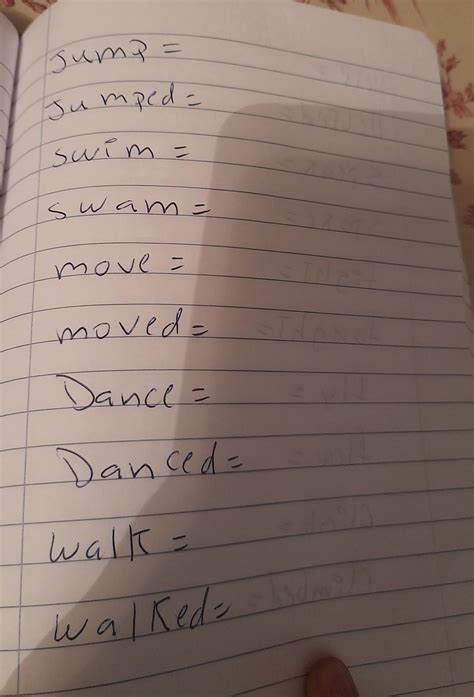 jump =
jumped =
swim =
swam =
move =
moved =
Dance =
Danced =
walk =
walked =